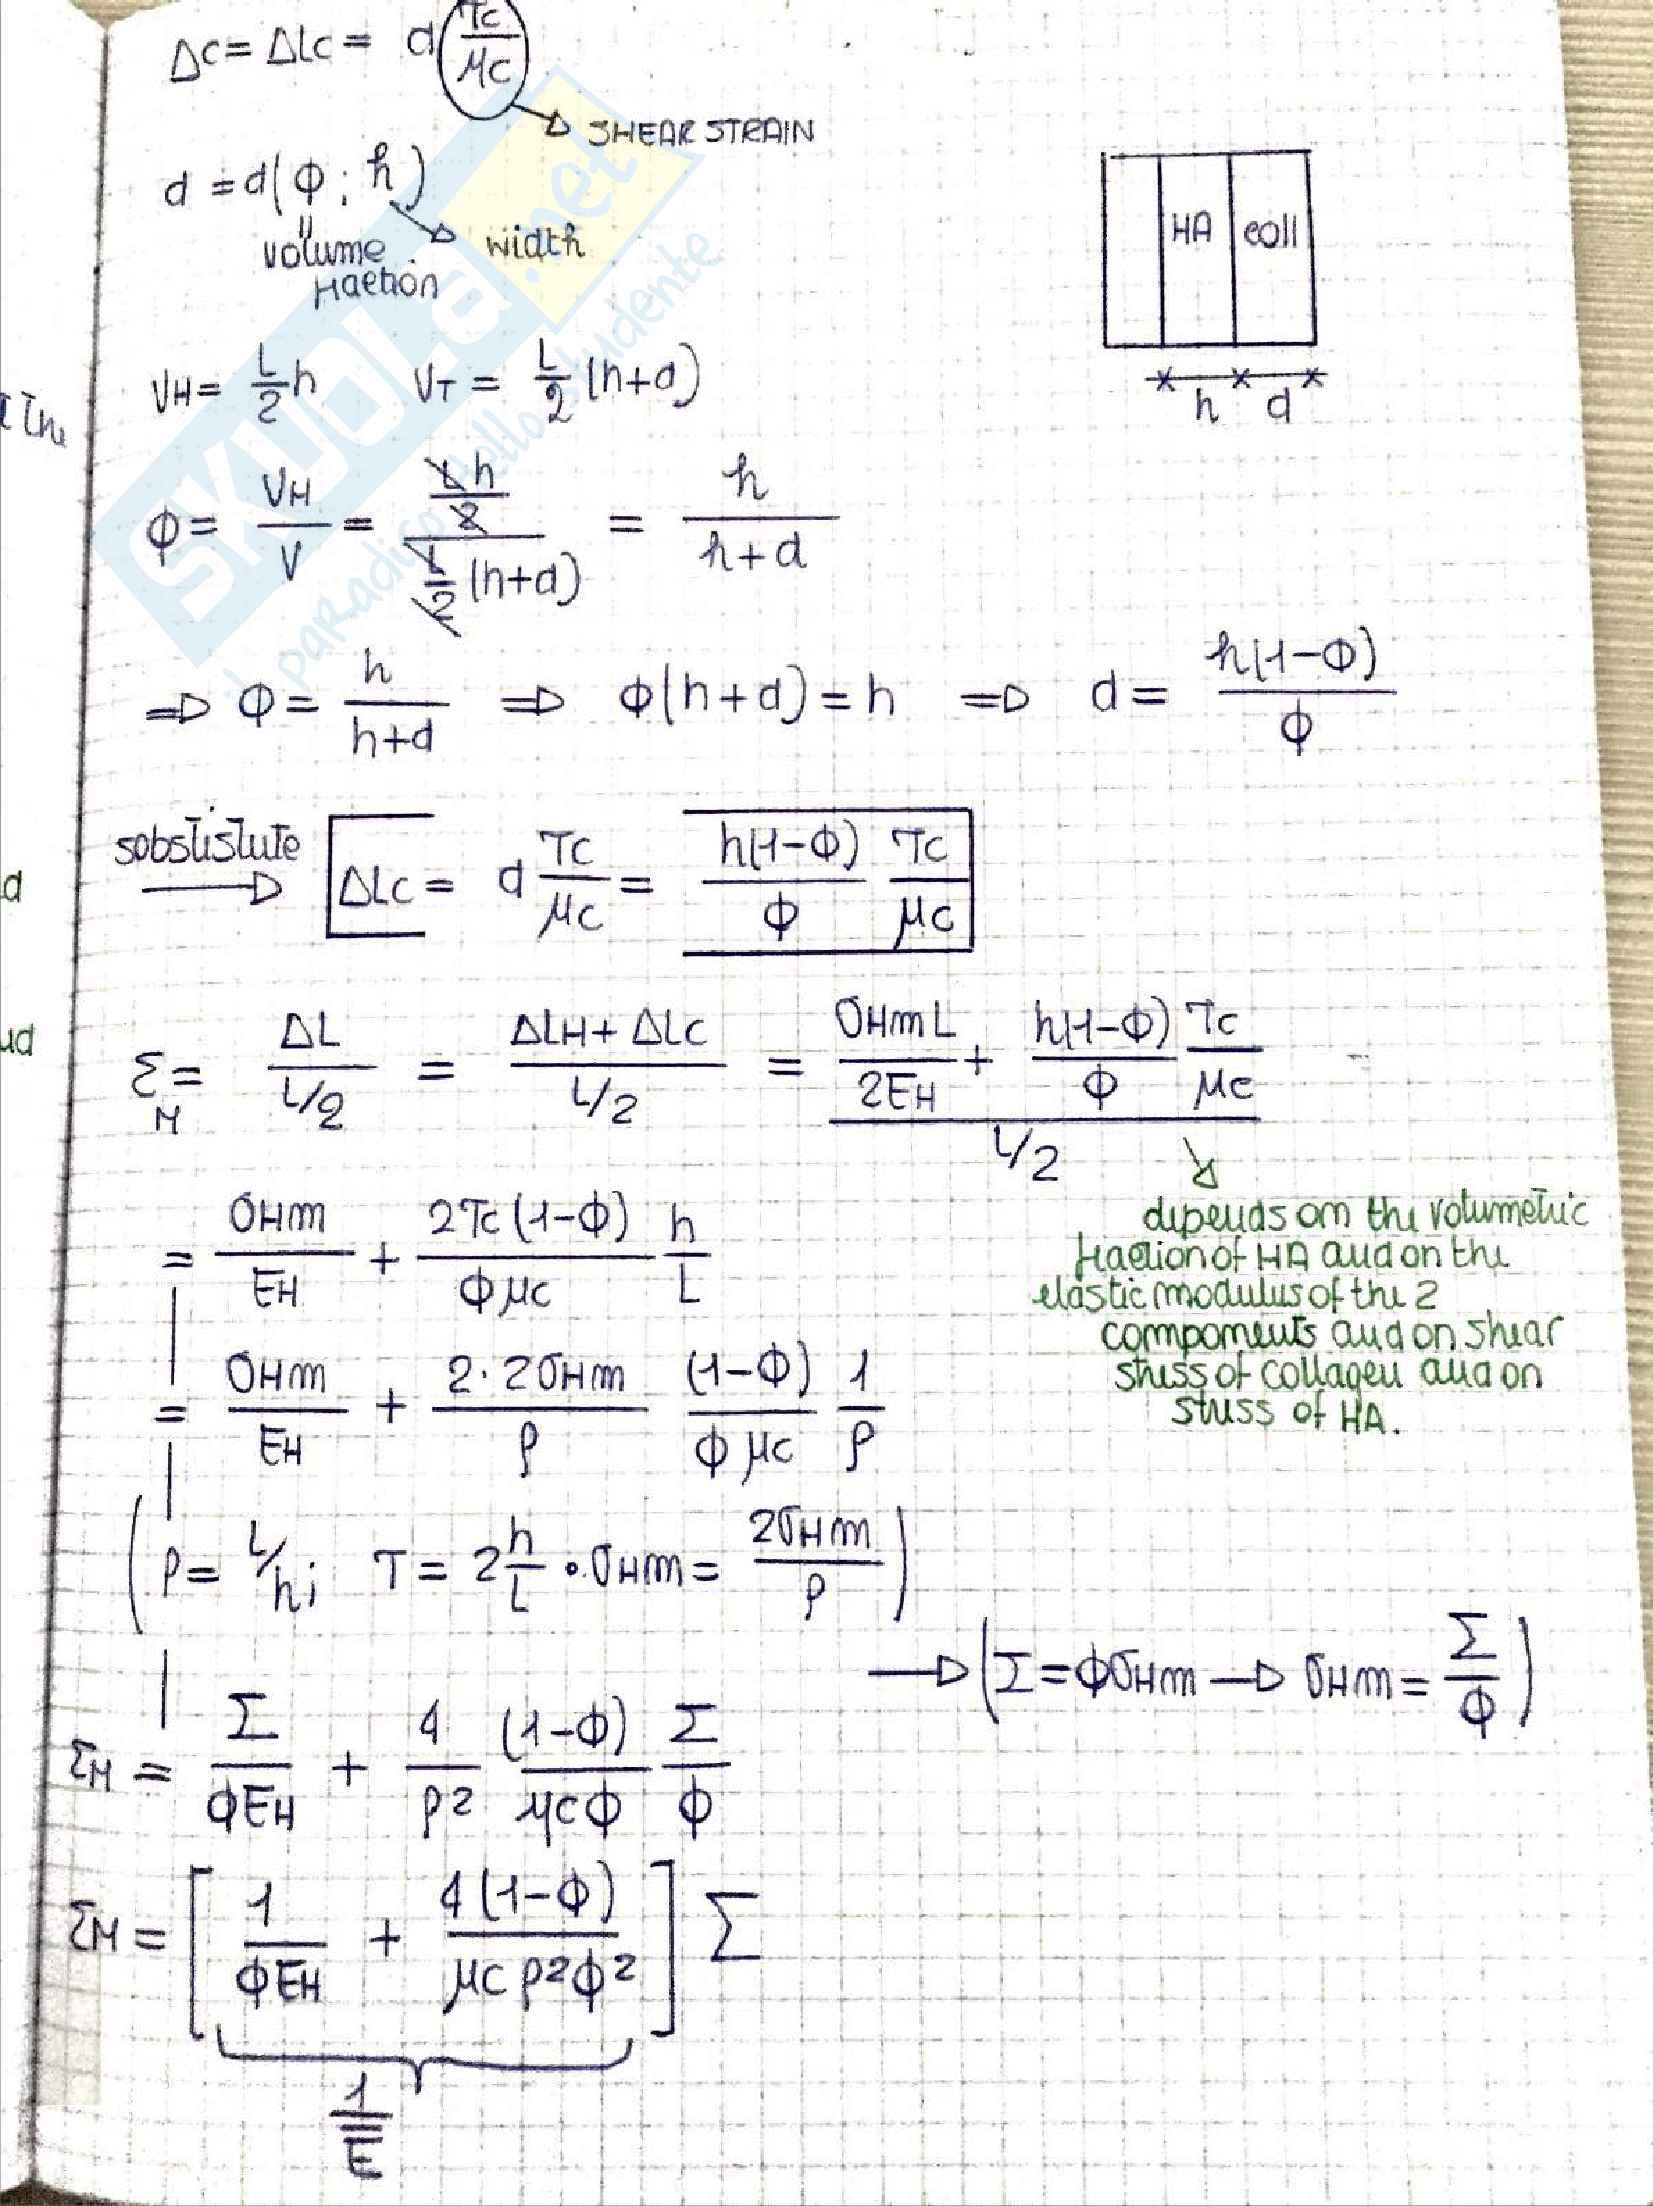 Δc = ΔLc = d τc/μc
→ SHEAR STRAIN
d = d(Φ; h)
volume fraction → width
HA coll
h d
VH = L/2 h VT = L/2 (h+d)
the
Φ = VH/V = (L h/2)/(L/2 (h+d)) = h/(h+d)
⇒ Φ = h/(h+d) ⇒ Φ(h+d) = h ⇒ d = h(1-Φ)/Φ
sobstistute → ΔLc = d τc/μc = h(1-Φ)/Φ τc/μc
d
ud
εM = ΔL/(L/2) = (ΔLH + ΔLc)/(L/2) = (σHm L/2EH + h(1-Φ)/Φ τc/μc)/(L/2)
= σHm/EH + 2τc(1-Φ)/(Φμc) h/L
depends on the volumetric
fraction of HA and on the
elastic modulus of the 2
components and on shear
stress of collagen and on
stress of HA.
= σHm/EH + 2·2σHm/ρ (1-Φ)/(Φμc) 1/ρ
(ρ = L/h; τ = 2 h/L · σHm = 2σHm/ρ)
→ (Σ = ΦσHm → σHm = Σ/Φ)
εM = Σ/(ΦEH) + 4/ρ² (1-Φ)/(μcΦ) Σ/Φ
εM = [1/(ΦEH) + 4(1-Φ)/(μcρ²Φ²)] Σ
1/E
SKUOLA.net
il paradiso dello studente